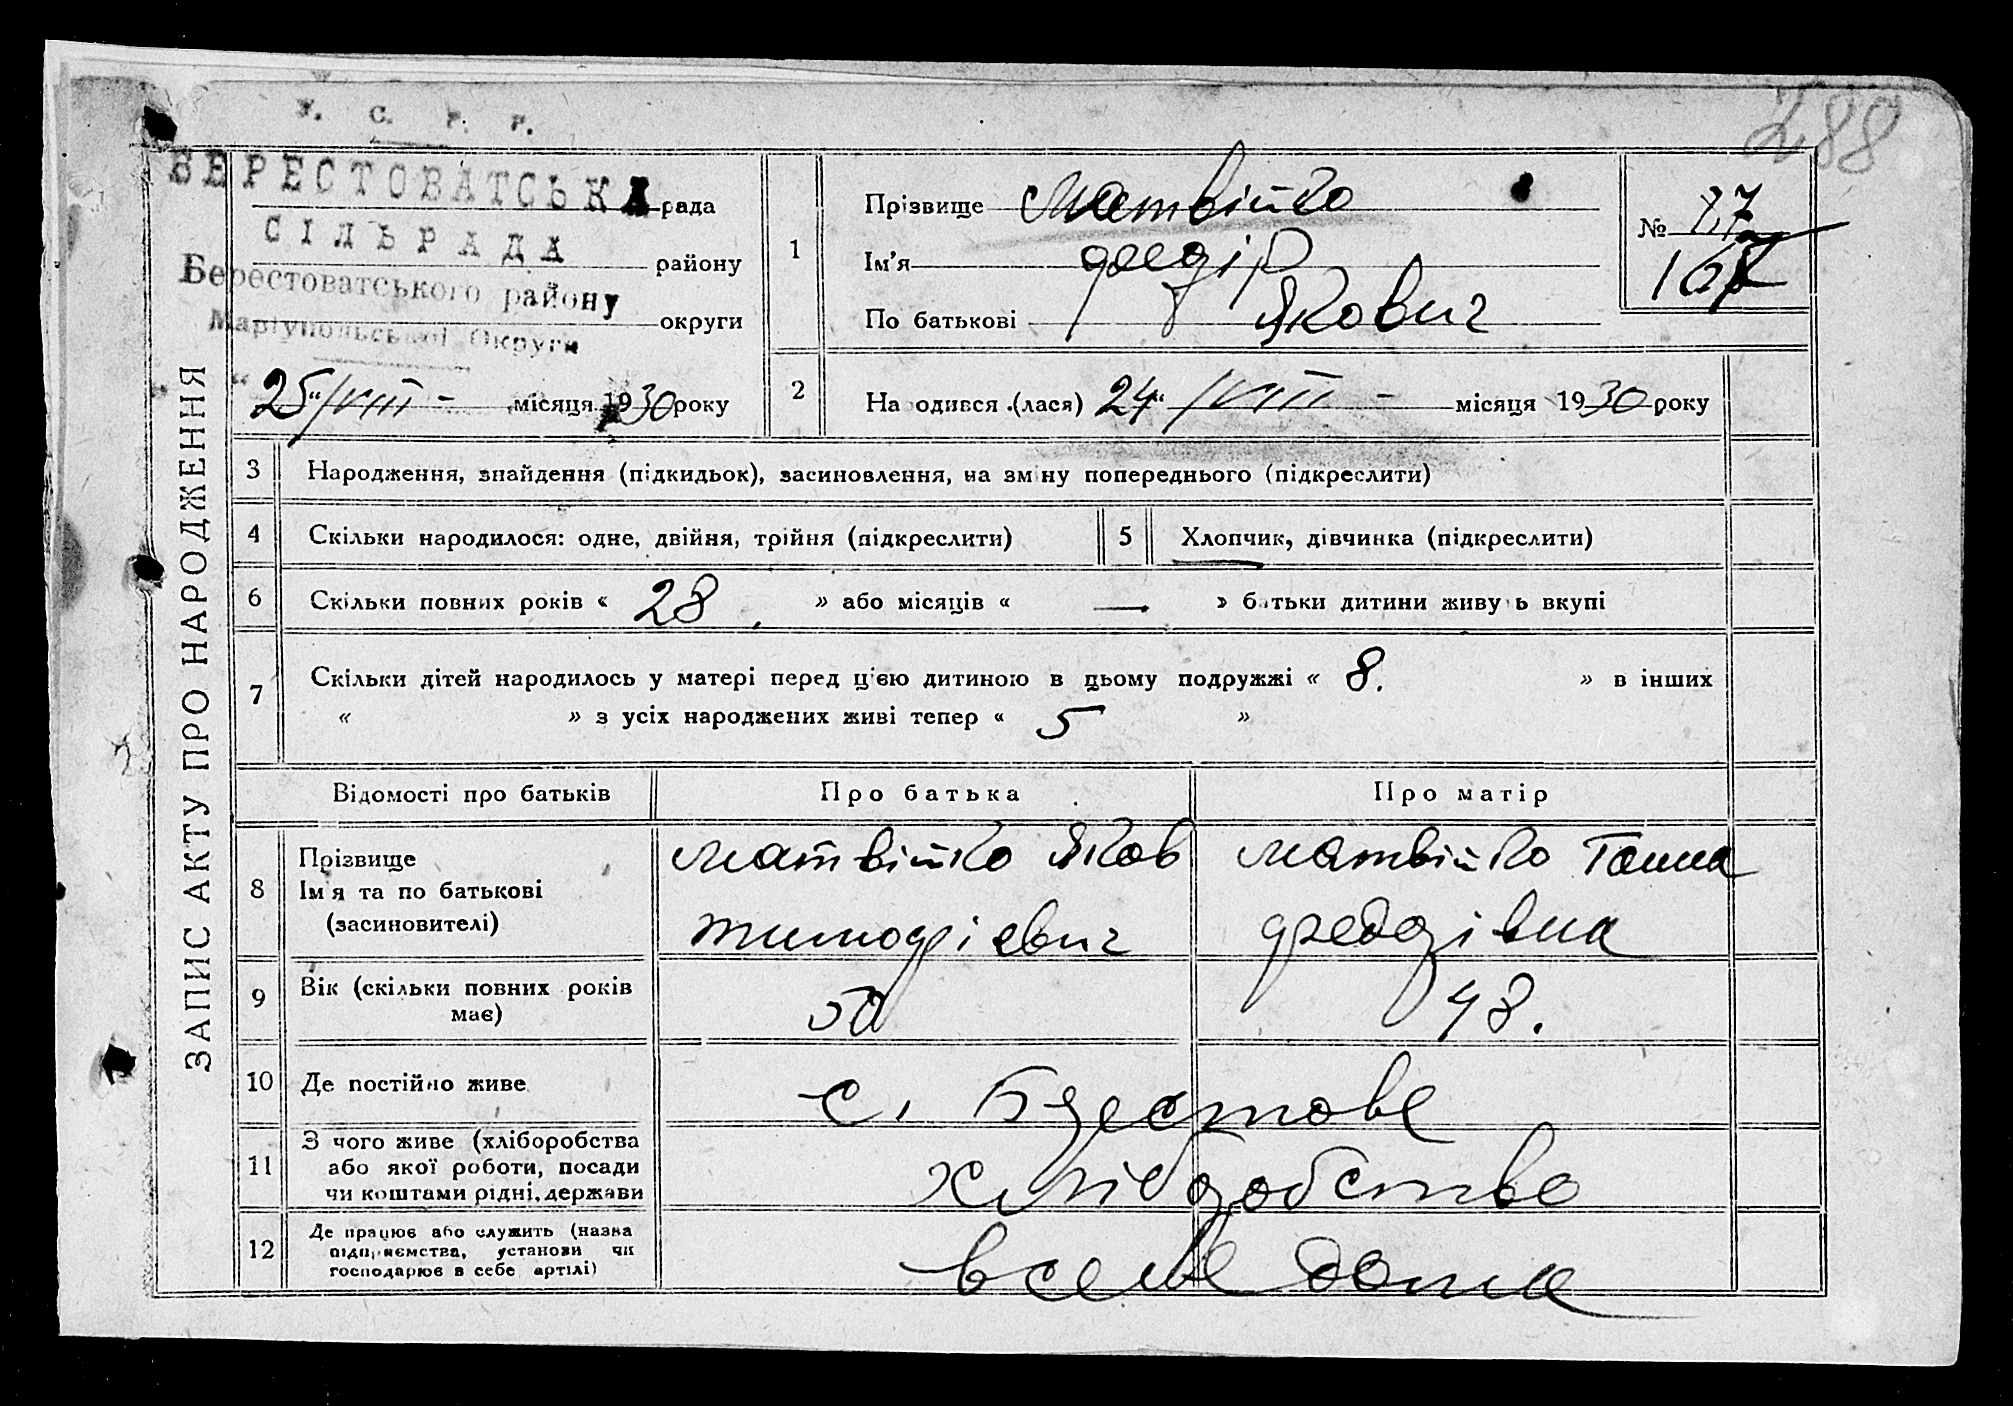 288
У. С. Р. Р.
БЕРЕСТОВАТСЬКА рада
СІЛЬРАДА району
Берестоватського району
Маріупольської Округи округи
"25" VIII - місяця 1930 року
ЗАПИС АКТУ ПРО НАРОДЖЕННЯ
1 Прізвище Матвійко
Ім'я Федір
По батькові Якович
№ 87
167
2 Народився (лася) "24" VIII - місяця 1930 року
3 Народження, знайдення (підкидьок), засиновлення, на зміну попереднього (підкреслити)
4 Скільки народилося: одне, двійня, трійня (підкреслити) 5 Хлопчик, дівчинка (підкреслити)
6 Скільки повних років « 28 » або місяців « — » батьки дитини живуть вкупі
7 Скільки дітей народилось у матері перед цією дитиною в цьому подружжі « 8. » в інших
« » з усіх народжених живі тепер « 5 »
Відомості про батьків Про батька Про матір
8 Прізвище
Ім'я та по батькові
(засиновителі)
Матвійко Яков
Тимофієвич
Матвійко Ганна
Федорівна
9 Вік (скільки повних років
має)
50 48.
10 Де постійно живе с. Берестове
11 З чого живе (хліборобства
або якої роботи, посади
чи коштами рідні, держави
хліборобство
12 Де працює або служить (назва
підприємства, установи чи
господарює в себе, артілі)
в себе дома